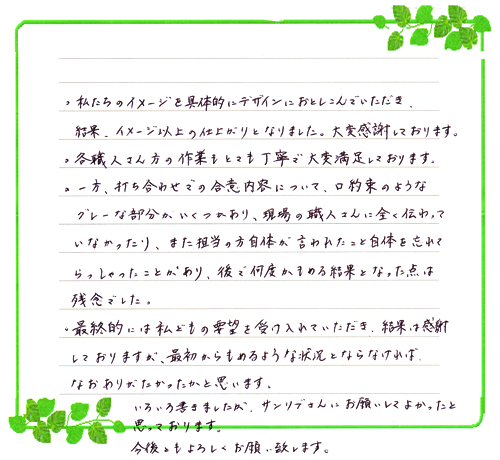 ・私たちのイメージを具体的にデザインにおとしこんでいただき、
結果、イメージ以上の仕上がりとなりました。大変感謝しております。
・各職人さん方の作業もとても丁寧で大変満足しております。
・一方、打ち合わせでの合意内容について、口約束のような
グレーな部分がいくつかあり、現場の職人さんに全く伝わって
いなかったり、また担当の方自体が言われたこと自体を忘れて
らっしゃったことがあり、後で何度かもめる結果となった点は
残念でした。
・最終的には私どもの要望を受け入れていただき、結果は感謝
しておりますが、最初からもめるような状況とならなければ、
なおありがたかったかと思います。
いろいろ書きましたが、サンリブさんにお願いしてよかったと
思っております。
今後ともよろしくお願い致します。